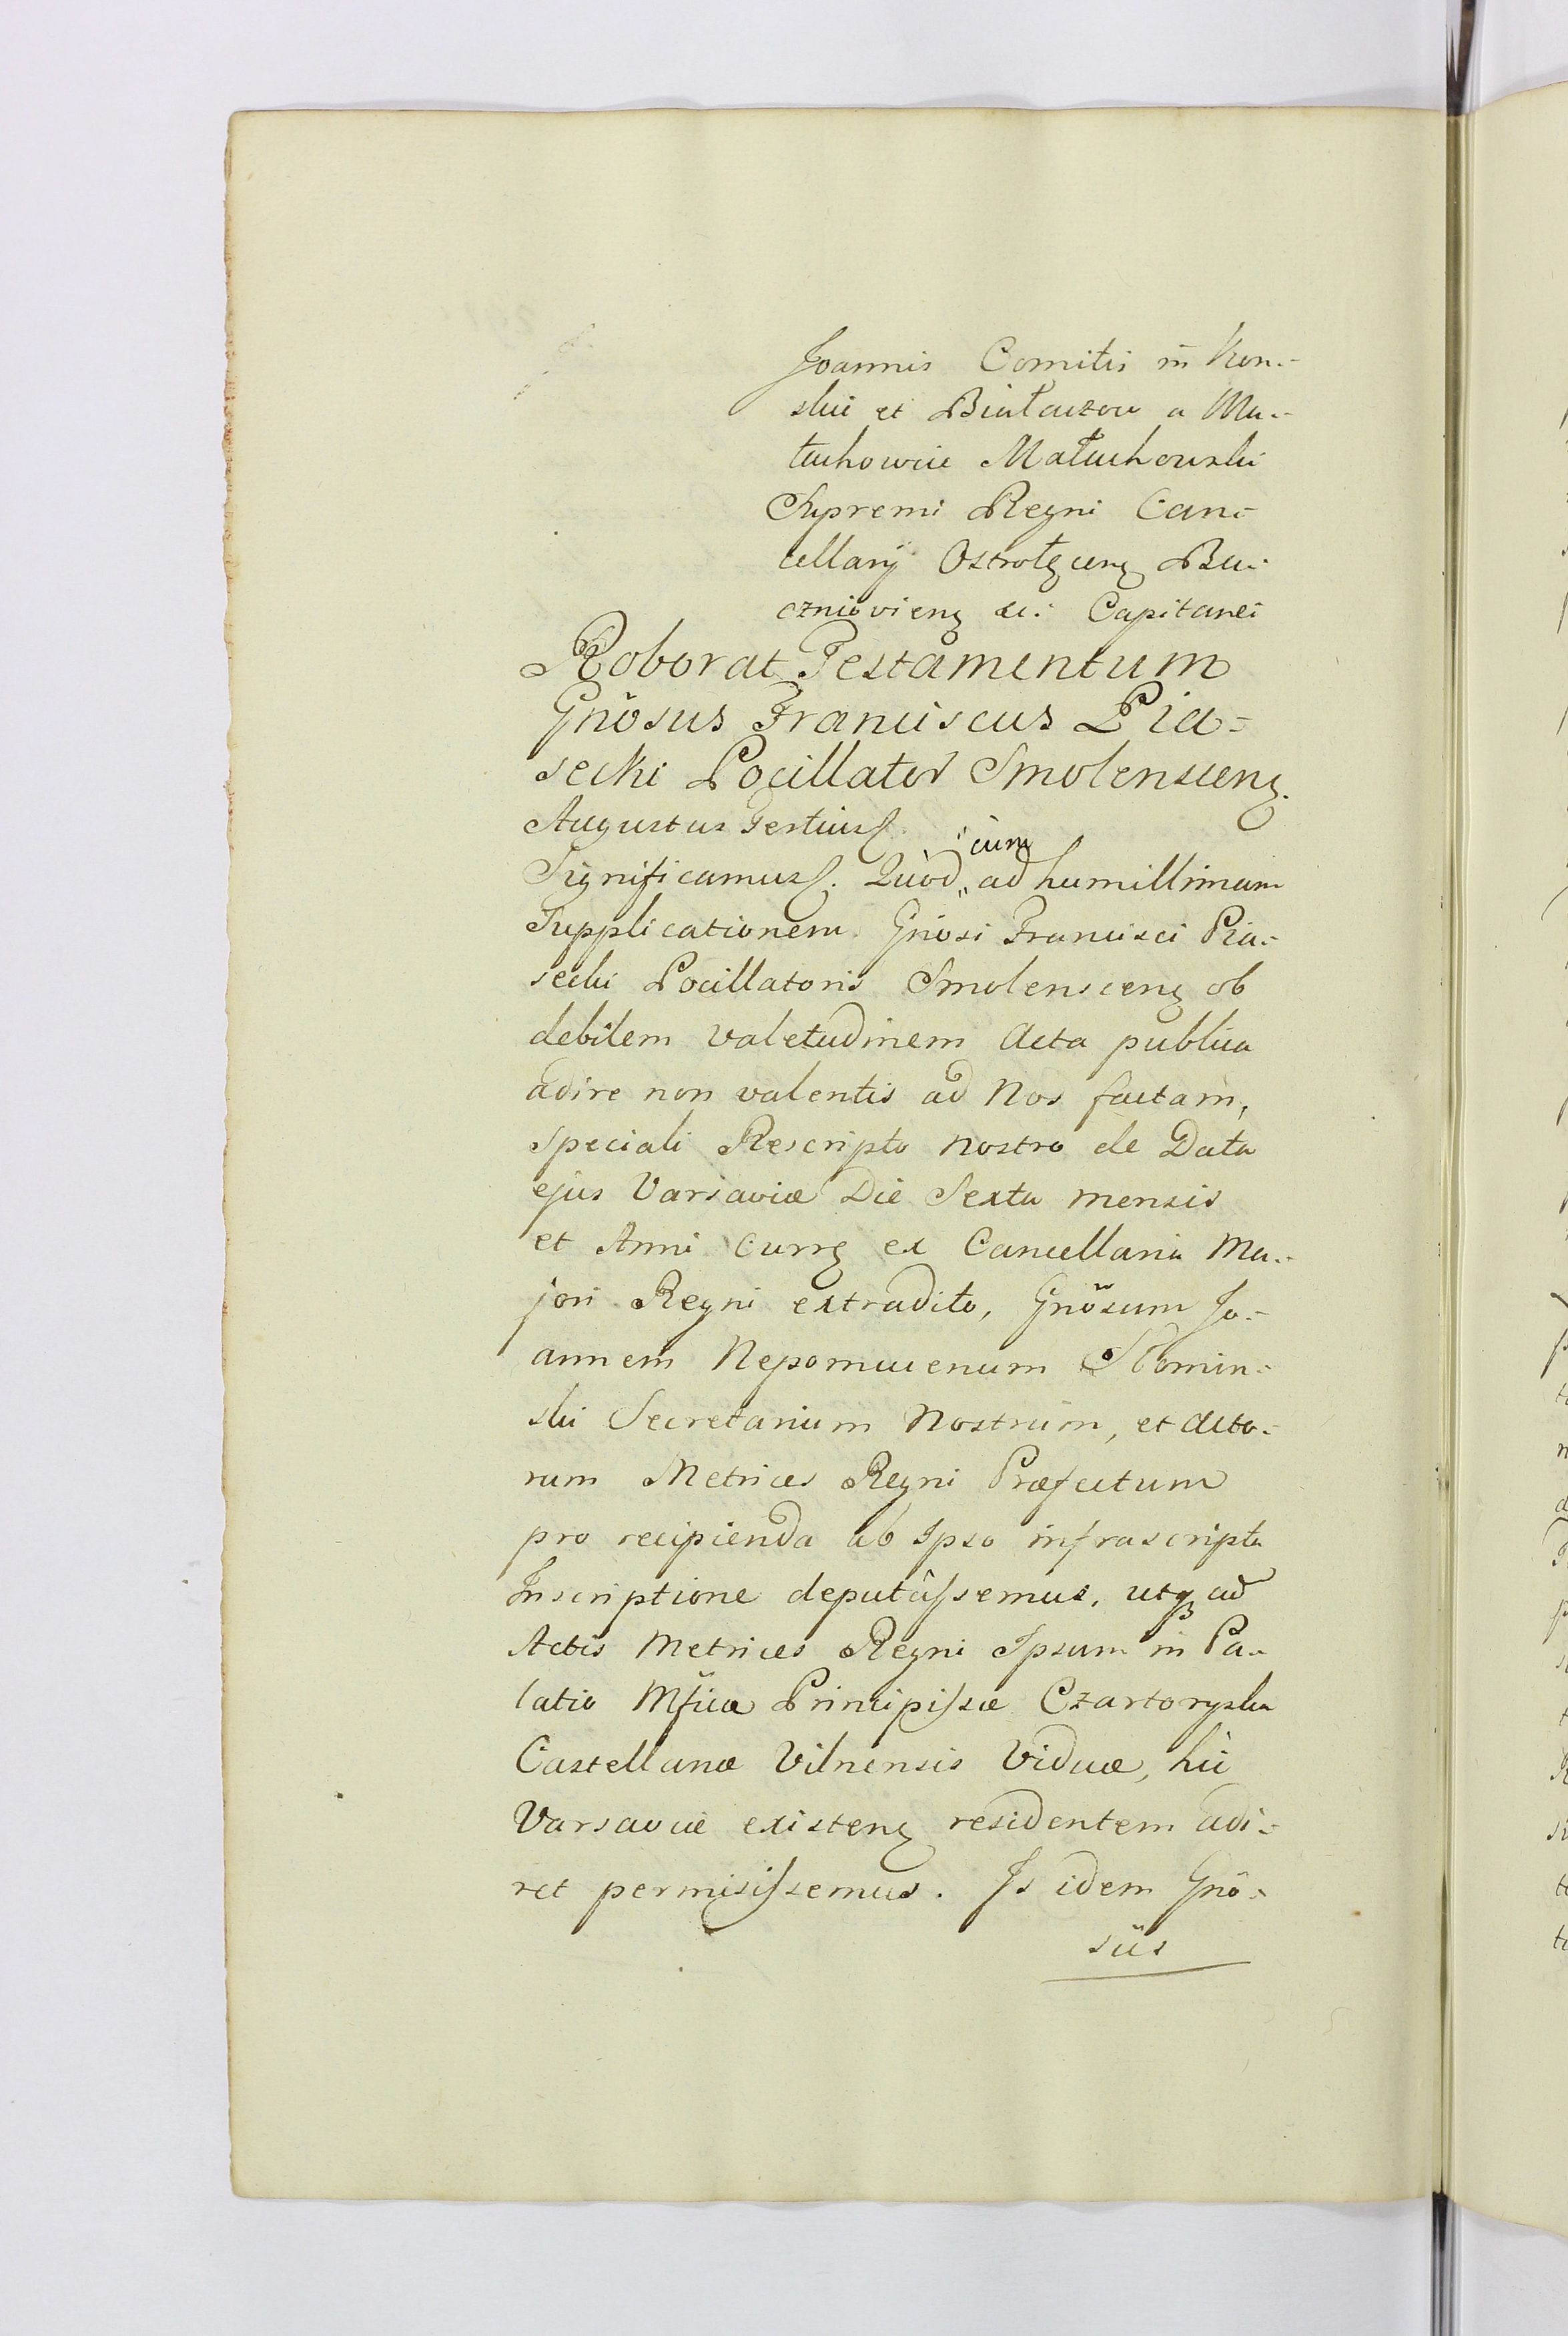 Joannis Comitis in Kon-
skie et Białaczow a Ma-
łachowice Małachowski
Supremi Regni Can-
cellarij Ostrołęcenȝ Bu-
czniovienȝ &c: Capitanei
Roborat Testamentum
Gnõsus Franciscus Pia-
secki Pocillator Smolenscenȝ.
Augustus Tertius
Significamus. Quod cum ad humillimam
Supplicationem Gnosi Francisci Pia-
secki Pocillatoris Smolenscenȝ ob
debilem valetudinem Acta publica
adire non valentis ad Nos factam,
speciali Rescripto nostro de Data
ejus Varsaviæ Die Sexta mensis
et Anni Currȝ ex Cancellaria Ma-
jori Regni extradito, Gnõsum Jo-
annem Nepomucenum Słomin-
ski Secretarium Nostrum, et Acto-
rum Metrices Regni Præfectum
pro recipienda ab Ipso infrascripta
Inscriptione deputassemus, utqȝ cum
Actis Metrices Regni Ipsum in Pa-
latio Mficæ Principissæ Czartoryska
Castellanæ Vilnensis Viduæ, hic
Varsaviæ existenȝ residentem adi-
ret permisissemus. Is idem Gnõ-
sus